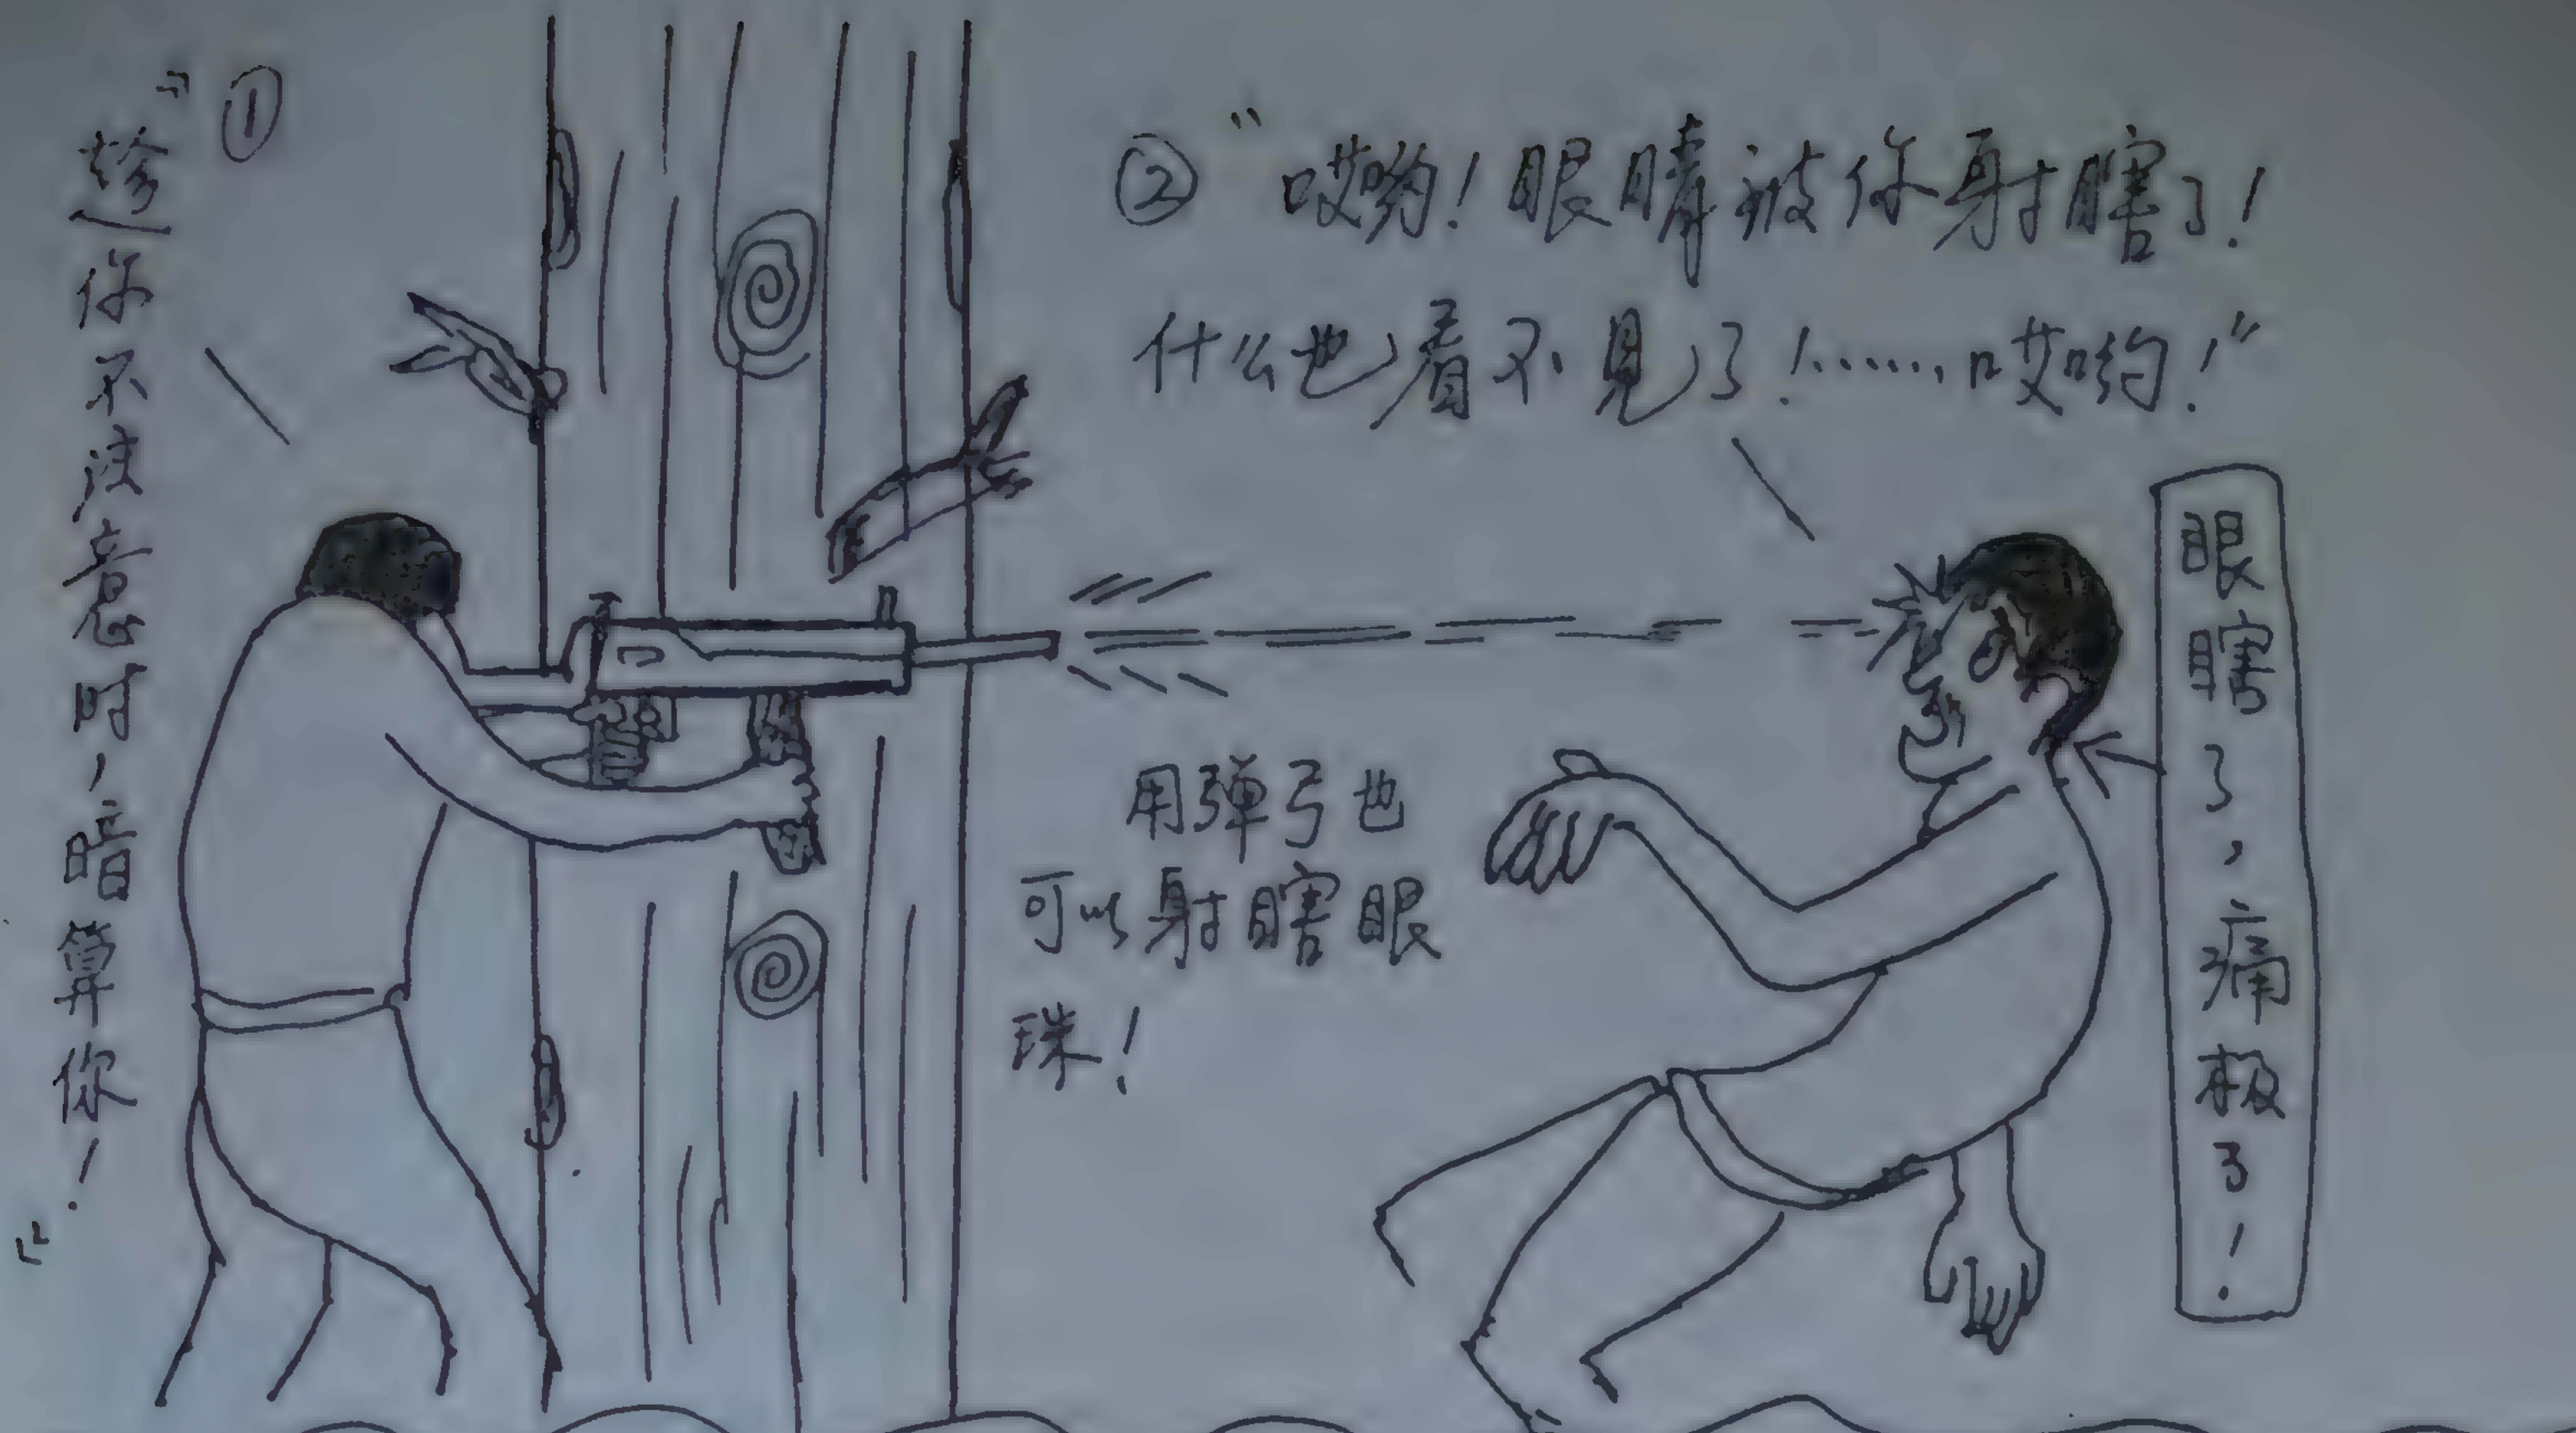 ①
“趁你不注意时，暗算你！”
② “哎哟！眼睛被你射瞎了！
什么也看不见了！……哎哟！”
用弹弓也
可以射瞎眼
珠！
眼瞎了，痛极了！